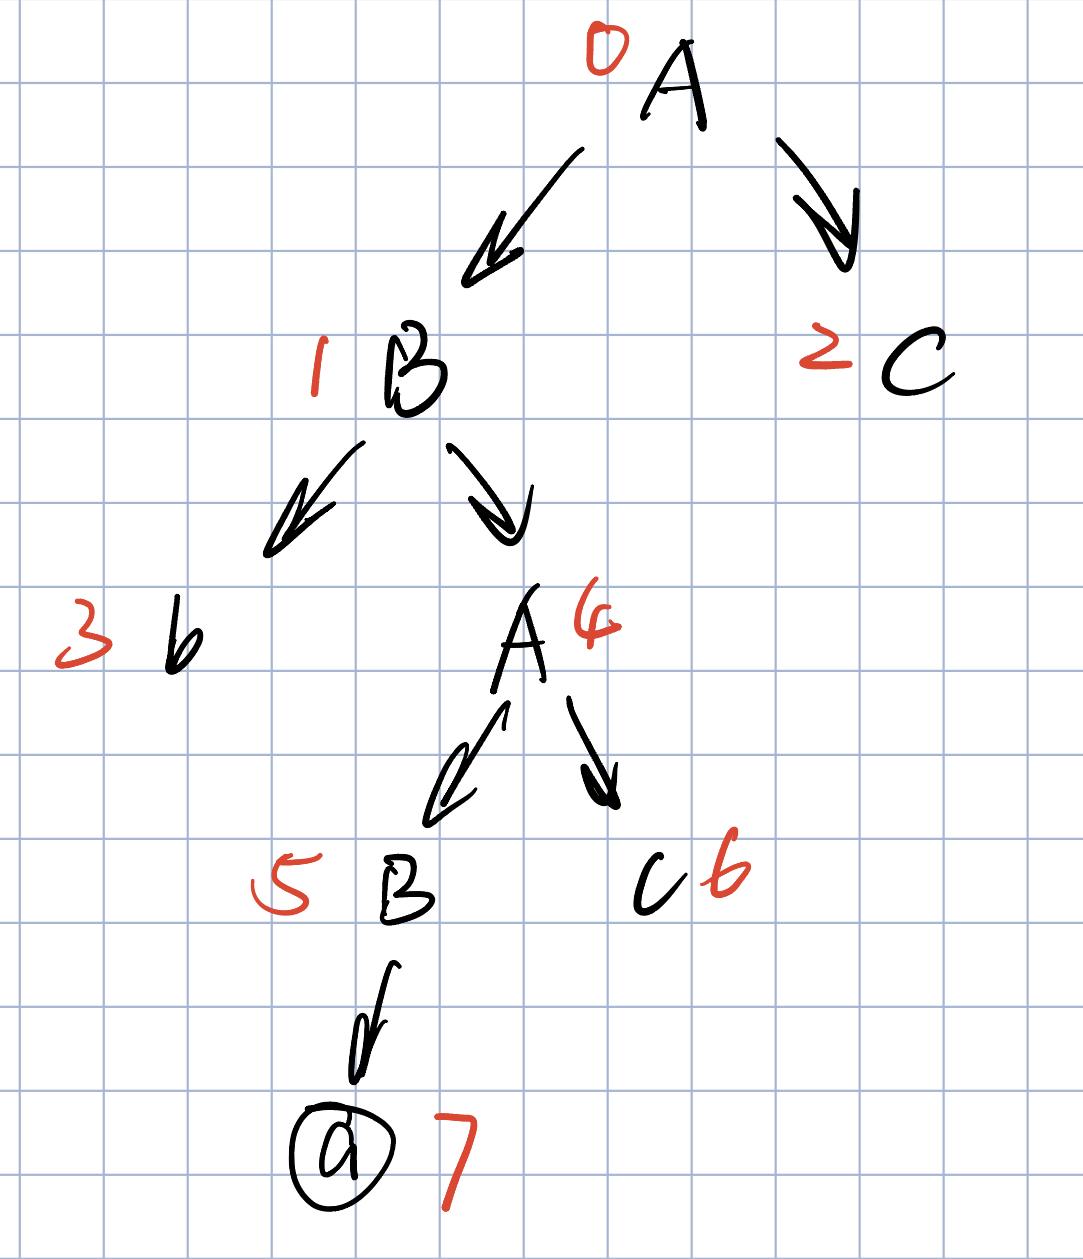 0 A
1 B 2 C
3 b A 4
5 B C 6
a 7